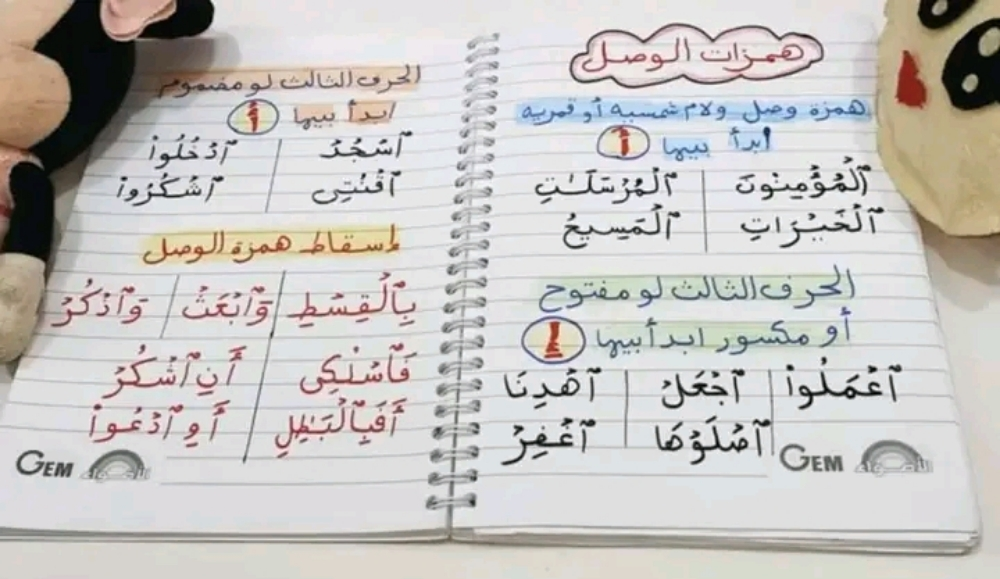 همزات الوصل
همزة وصل ولام شمسيه أو قمريه
ابدأ بيها أَ
ٱلْمُؤْمِنُونَ ٱلْمُرْسَلَـٰتِ
ٱلْخَيْرَاتِ ٱلْمَسِيحُ
الحرف الثالث لو مفتوح
أو مكسور ابدأ بيها إ
ٱعْمَلُوا۟ ٱجْعَلْ ٱهْدِنَا
ٱصْلَوْهَا ٱغْفِرْ
GEM الأضواء
الحرف الثالث لو مضموم
ابدأ بيها أُ
ٱسْجُدْ ٱدْخُلُوا۟
ٱقْنُتِى ٱشْكُرُوا۟
اسقاط همزة الوصل
بِٱلْقِسْطِ وَٱبْعَثْ وَٱذْكُرْ
فَٱسْلُكِى أَنِ ٱشْكُرْ
أَفَبِٱلْبَـٰطِلِ أَوِ ٱدْعُوا۟
GEM الأضواء